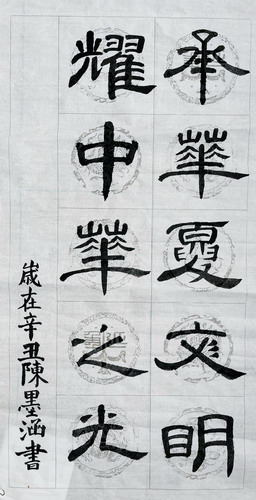 承華夏文明
耀中華之光
歲在辛丑陳墨涵書